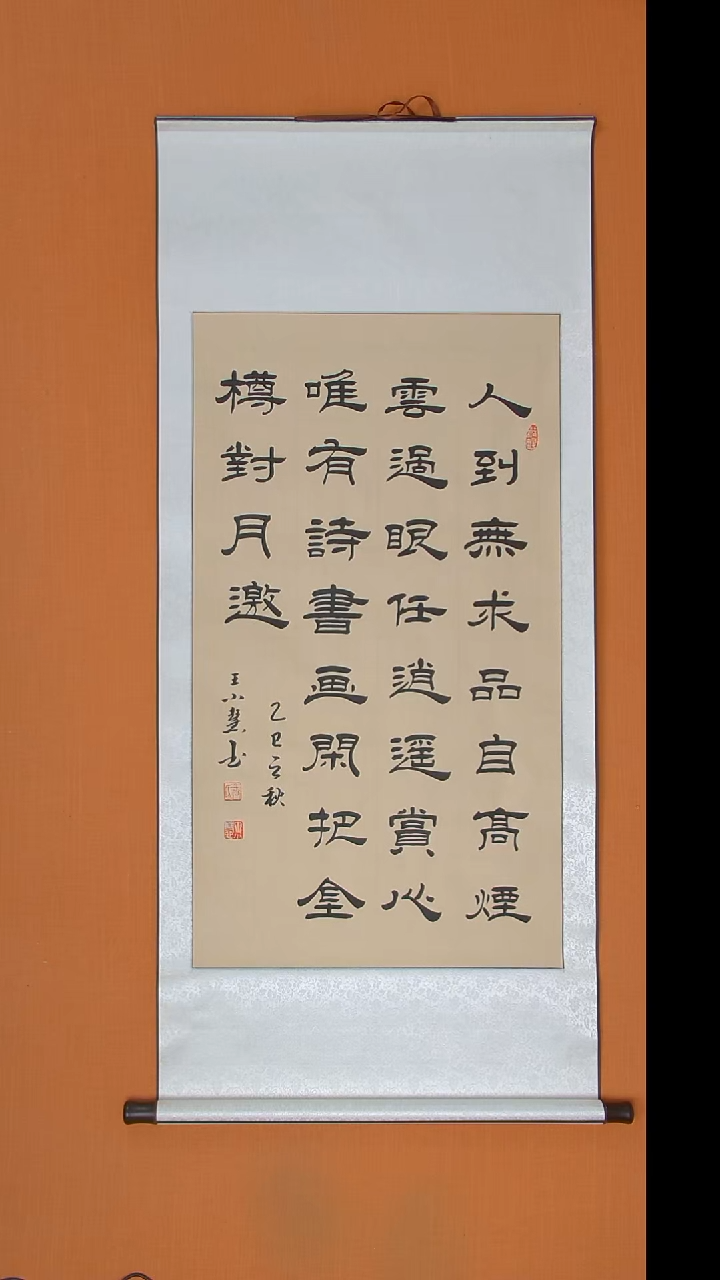 人到無求品自高煙
雲過眼任逍遥賞心
唯有詩書画閑把金
樽對月邀
乙巳之秋
王小慧书